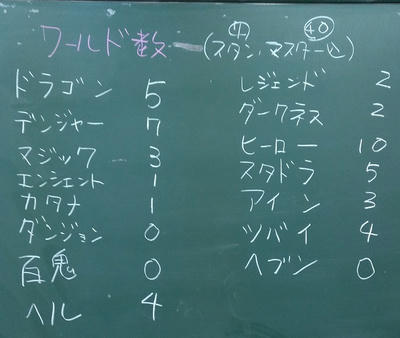 ワールド数 (スタン、マスター込) 40
ドラゴン 5
デンジャー 7
マジック 3
エンシェント 1
カタナ 1
ダンジョン 0
百鬼 0
ヘル 4
レジェンド 2
ダークネス 2
ヒーロー 10
スタドラ 5
アイン 3
ツバイ 4
ヘブン 0